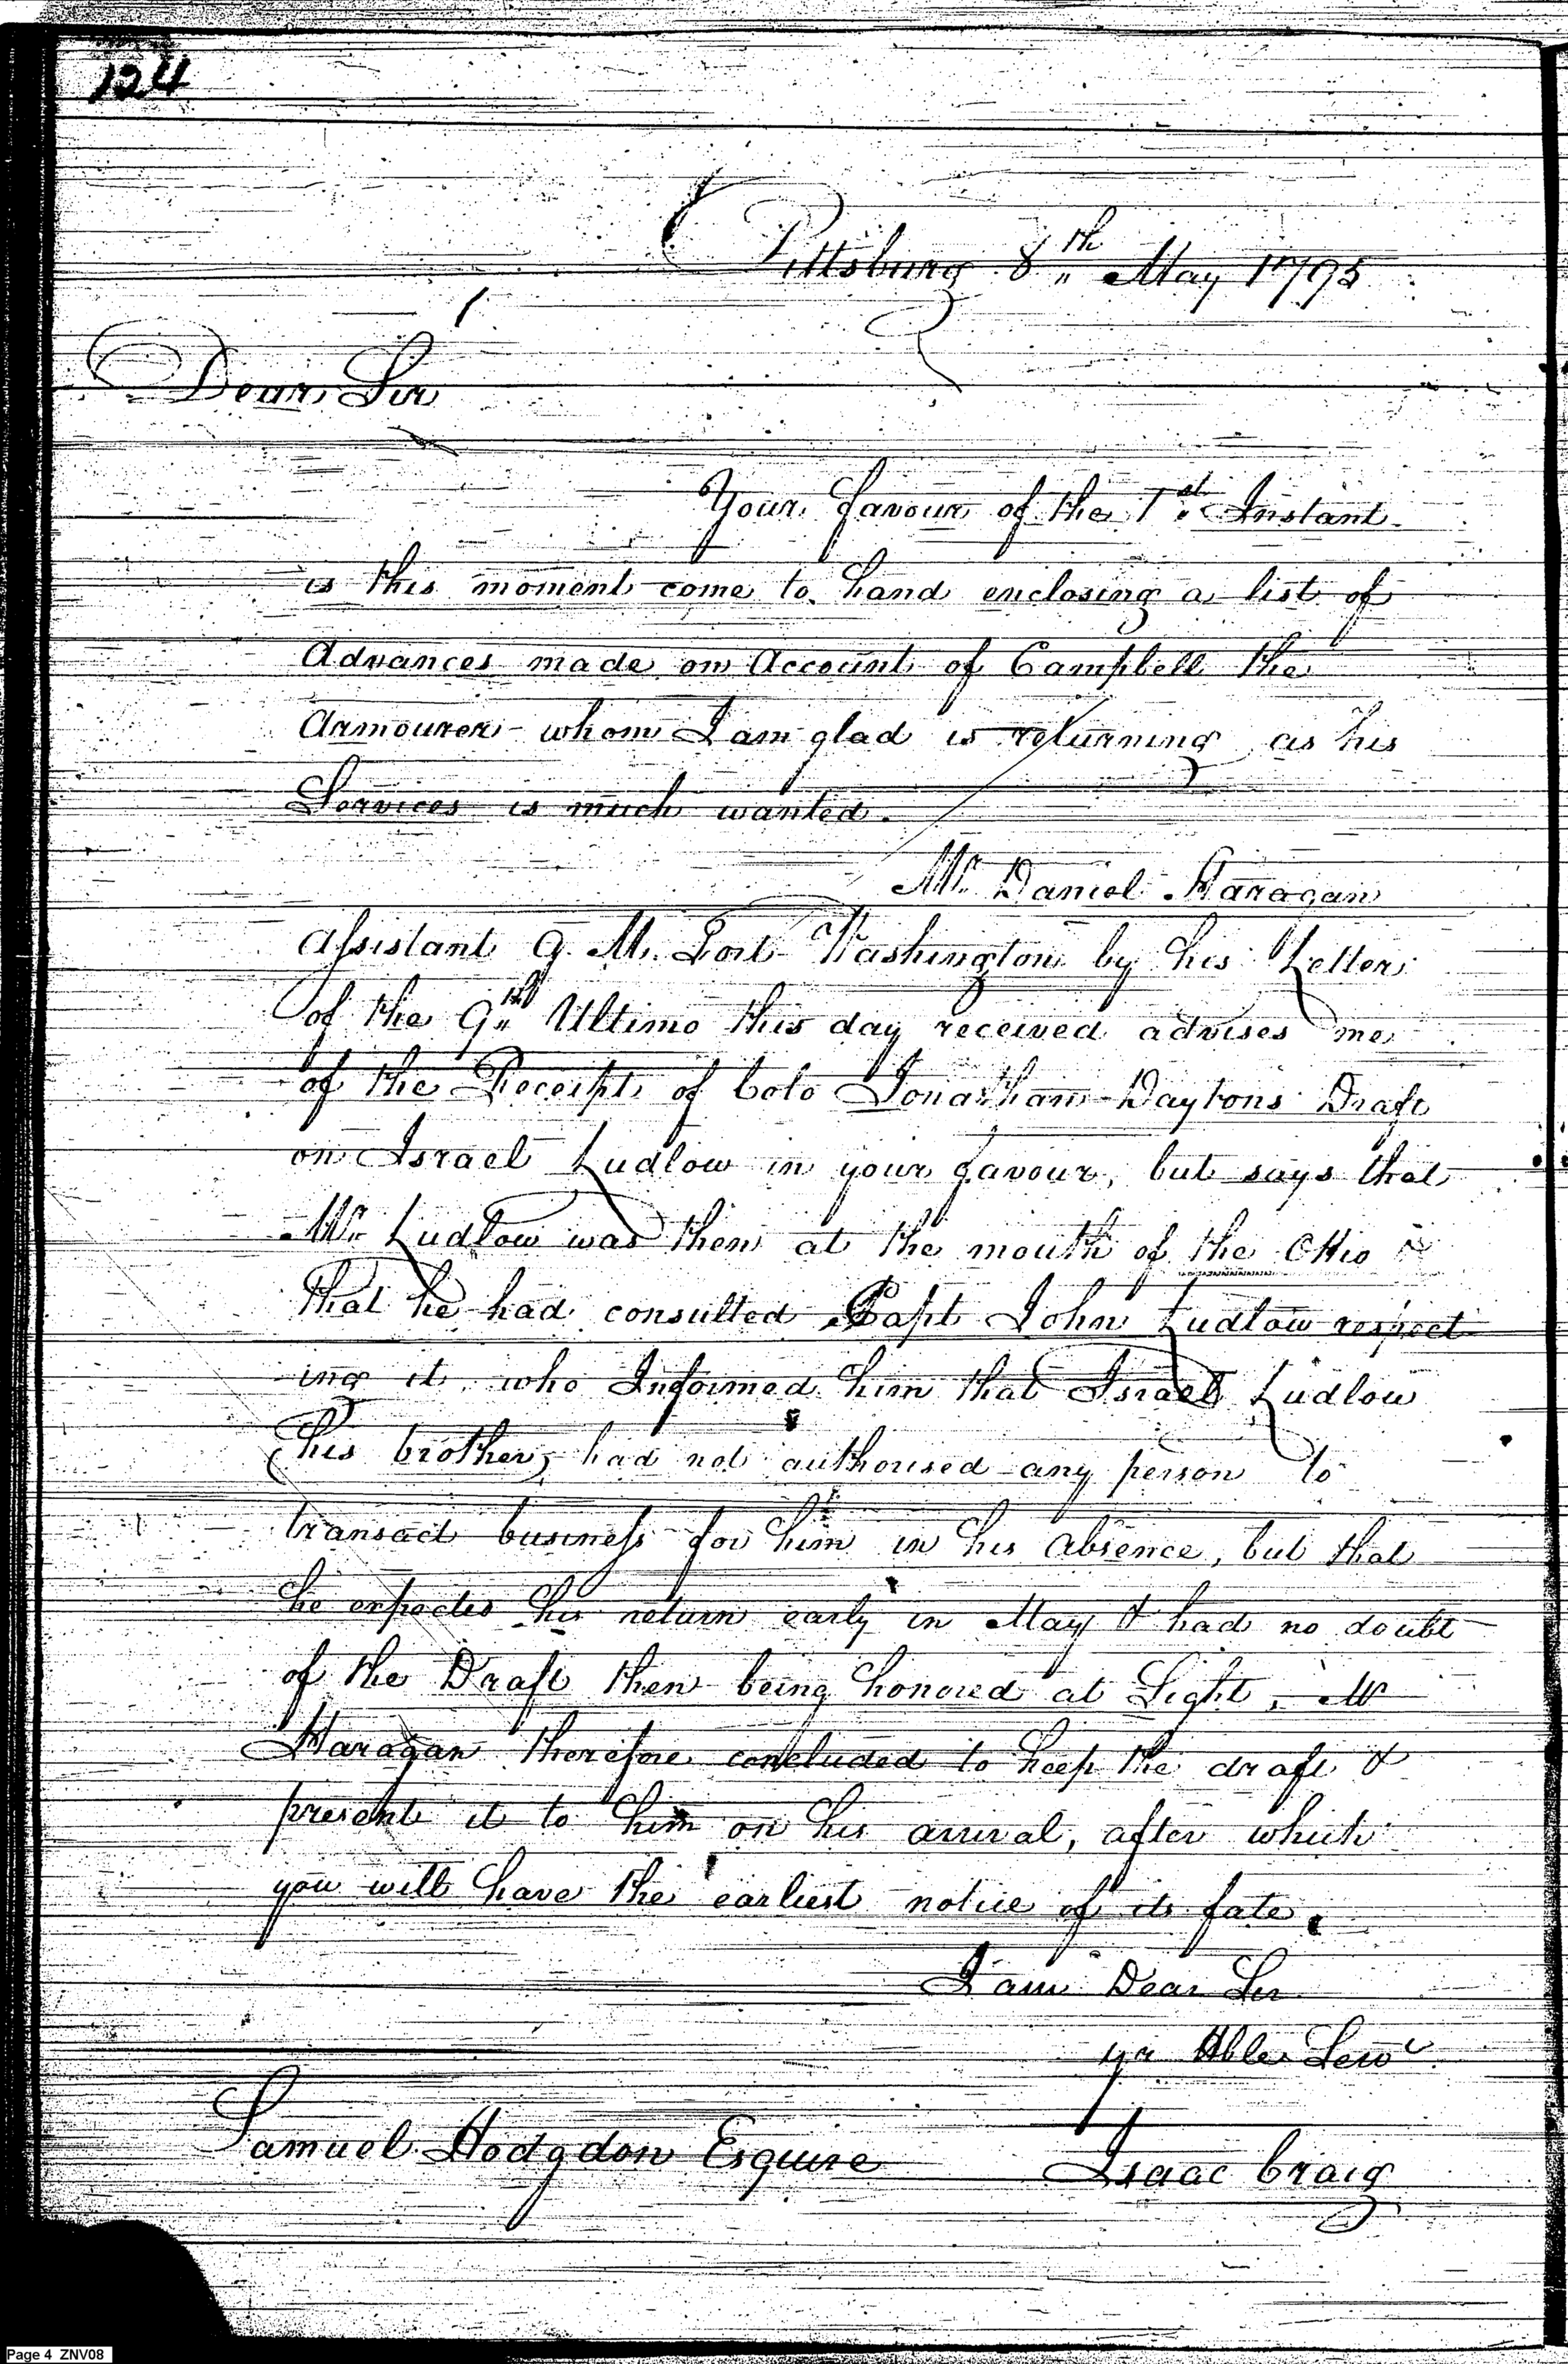 124
Pittsburg 8th May 1795
Dear Sir
Your favour of the 1st Instant
is this moment come to hand enclosing a list of
Advances made on Account of Campbell the
Armourer whom I am glad is returning as his
Services is much wanted.
Mr. Daniel Haragan
Assistant Q. M. Fort Washington by his Letter
of the 9th Ultimo this day received advises me
of the Receipt of Colo Jonathan Daytons Draft
on Israel Ludlow in your favour, but says that
Mr. Ludlow was then at the mouth of the Ohio &
that he had consulted Capt John Ludlow respect
ing it who Informed him that Israel Ludlow
(his brother) had not authorised any person to
transact business for him in his absence, but that
he expected his return early in May & had no doubt
of the Draft then being honored at Sight, Mr
Haragan therefore concluded to keep the draft &
present it to him on his arrival, after which
you will have the earliest notice of its fate.
I am Dear Sir
yr Hble Servt
Samuel Hodgdon Esquire
Isaac Craig
Page 4 ZNV08